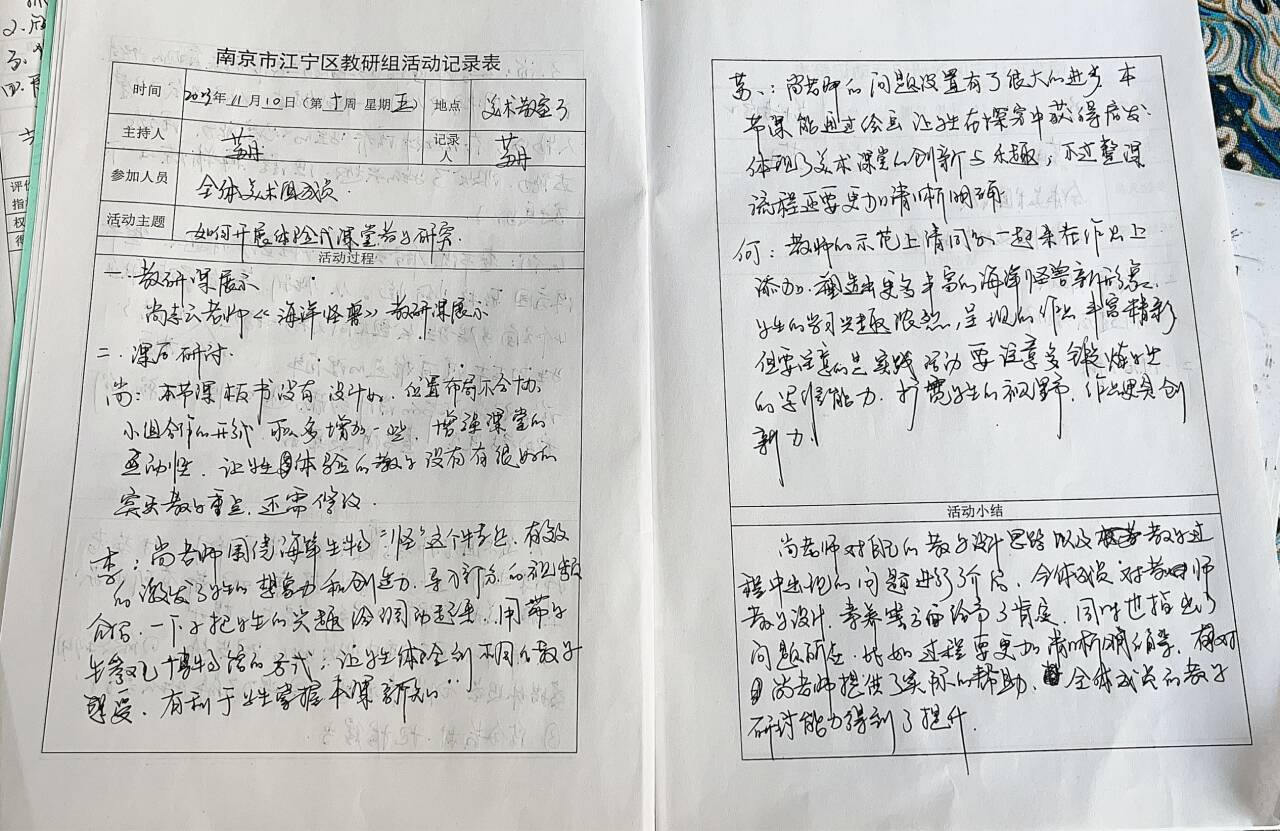 南京市江宁区教研组活动记录表
时间 2023年11月10日(第十周 星期五) 地点 美术教室3
主持人 记录人
参加人员 全体美术组成员
活动主题 如何开展体验式课堂教学研究
活动过程
一. 教研课展示
尚李云老师《海洋怪兽》教研课展示
二. 课后研讨.
尚: 本节课板书没有设计好, 位置布局不合加,
小组合作的形式可以多增加一些, 增强课堂的
互动性. 让学生体验的教学没有有很好的
突出教学重点, 还需修改.
李: 尚老师围绕海洋生物“怪”这个特征, 有效
的激发了学生的想象力和创造力. 导入部分的视频
介绍, 一下子把学生的兴趣给调动起来. 用带学
生参观博物馆的方式, 让学生体验到不同的教学
感受, 有利于学生掌握本课新知.
: 尚老师的问题设置有了很大的进步, 本
节课能通过绘画让学生在探究中获得启发.
体现了美术课堂的创新与乐趣, 不过整课
流程还要更加清晰明确.
何: 教师的示范上请同学一起来在作品上
添加. 创造出更多丰富的海洋怪兽新形象.
学生的学习兴趣浓烈, 呈现的作品丰富精彩
但要注意的是实践活动要注意多锻炼学生
的思维能力. 扩宽学生的视野, 作品更具创
新力.
活动小结
尚老师对自己的教学设计思路以及教学过
程中出现的问题进行了介绍. 全体成员对尚老师
教学设计, 素养等方面给予了肯定, 同时也指出了
问题所在. 比如过程要更加清晰明确等,
对尚老师提供了实际的帮助, 全体成员的教学
研讨能力得到了提升.